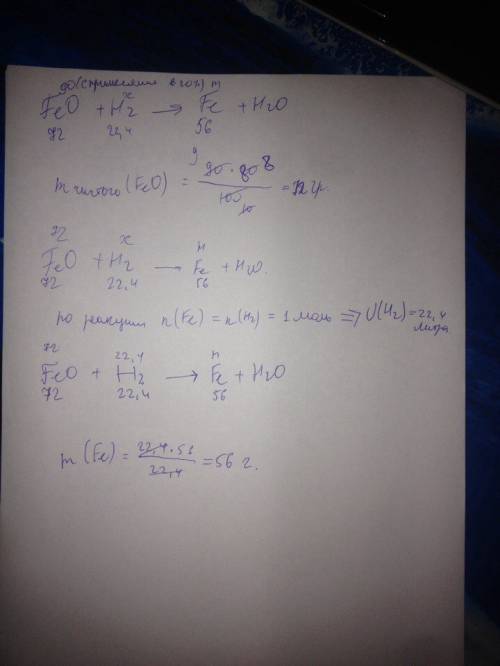 90 (с примесями в 20%) m
x
FeO + H2 → Fe + H2O
72 22,4 56
m чистого (FeO) = 90·80 / 100 = 72 гр.
72 x m
FeO + H2 → Fe + H2O.
72 22,4 56
по реакции n(Fe) = n(H2) = 1 моль => V(H2) = 22,4 литра
72 22,4 m
FeO + H2 → Fe + H2O
72 22,4 56
m (Fe) = 22,4·56 / 22,4 = 56 г.